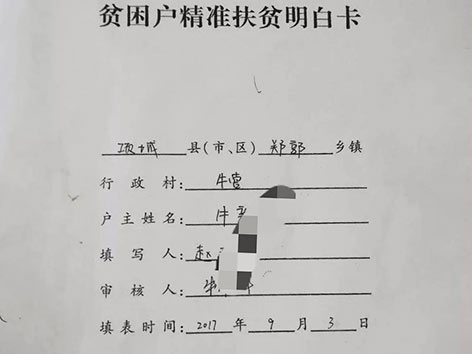 贫困户精准扶贫明白卡
项城县(市、区)郑郭乡镇
行政村:牛营
户主姓名:牛
填写人:赵
审核人:牛
填表时间:2017年9月3日